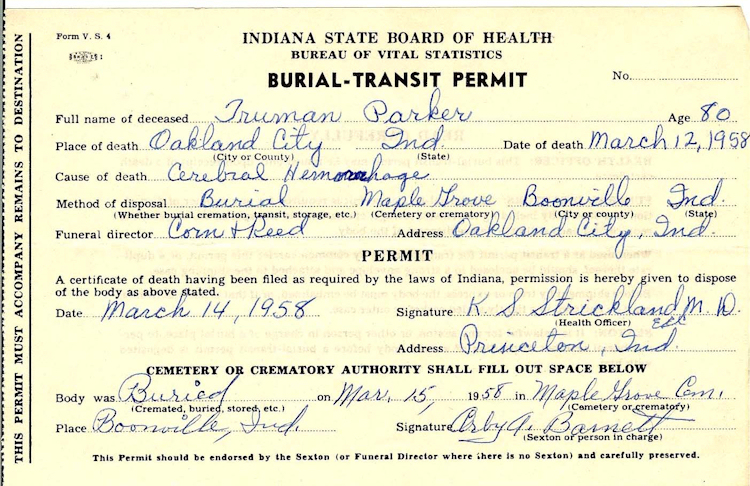 Form V. S. 4
INDIANA STATE BOARD OF HEALTH
BUREAU OF VITAL STATISTICS
BURIAL-TRANSIT PERMIT
No.
Full name of deceased Truman Parker Age 80
Place of death Oakland City Ind. Date of death March 12, 1958
(City or County) (State)
Cause of death Cerebral Hemorrhage
Method of disposal Burial Maple Grove Boonville Ind.
(Whether burial cremation, transit, storage, etc.) (Cemetery or crematory) (City or county) (State)
Funeral director Corn + Reed Address Oakland City, Ind.
PERMIT
A certificate of death having been filed as required by the laws of Indiana, permission is hereby given to dispose
of the body as above stated.
Date March 14, 1958 Signature K S Strickland M. D.
(Health Officer)
Address Princeton, Ind.
CEMETERY OR CREMATORY AUTHORITY SHALL FILL OUT SPACE BELOW
Body was Buried on Mar. 15, 1958 in Maple Grove Cem.
(Cremated, buried, stored, etc.) (Cemetery or crematory)
Place Boonville, Ind. Signature Arby A. Barnett
(Sexton or person in charge)
This Permit should be endorsed by the Sexton (or Funeral Director where there is no Sexton) and carefully preserved.
THIS PERMIT MUST ACCOMPANY REMAINS TO DESTINATION